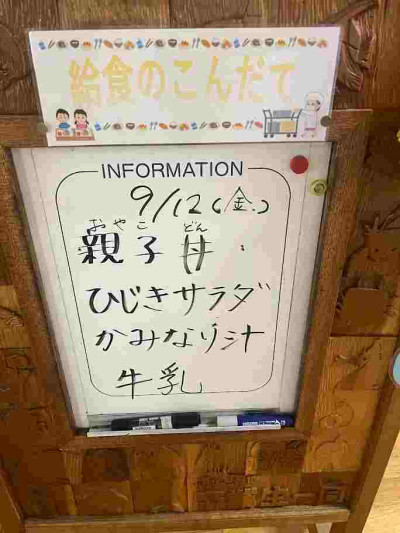 給食のこんだて
INFORMATION
9/12(金)
おやこ どん
親子丼
ひじきサラダ
かみなり汁
牛乳